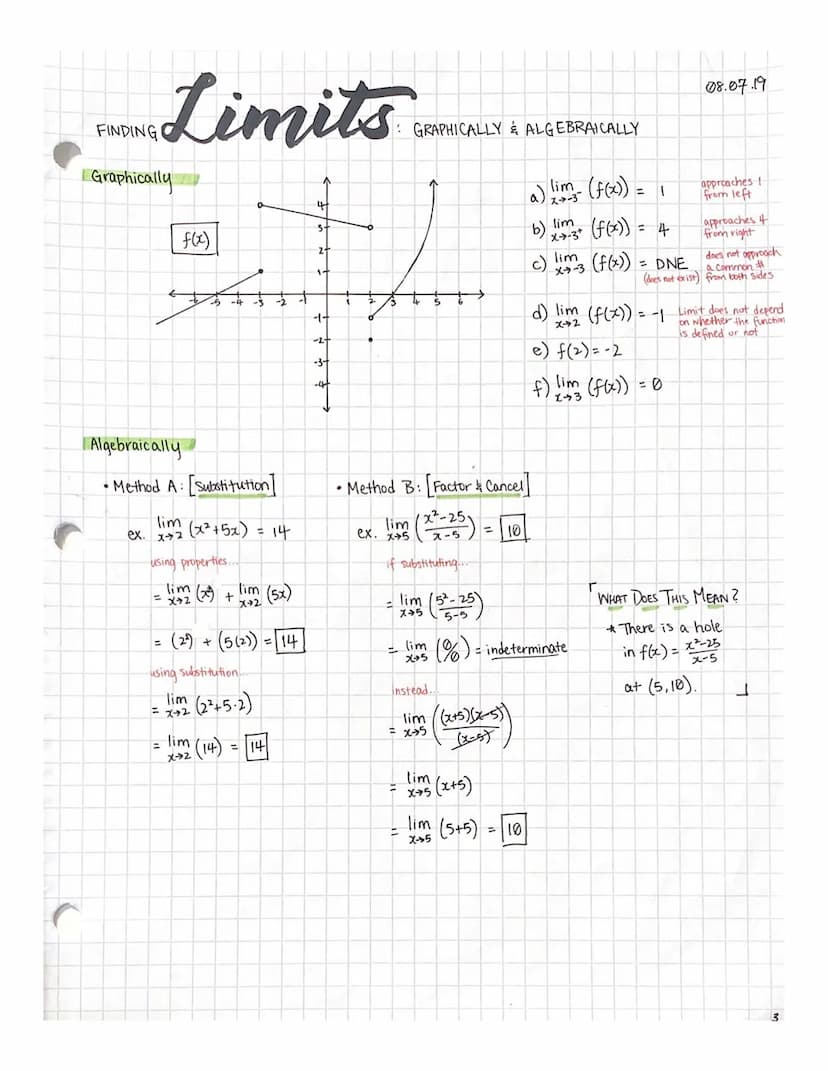 08.07.19
FINDING Limits: GRAPHICALLY & ALGEBRAICALLY
Graphically
f(x)
4
3
2
1
-1
-2
-3
-4
-6 -5 -4 -3 -2 -1 1 2 3 4 5 6
a) lim x→-3⁻ (f(x)) = 1 approaches 1 from left
b) lim x→-3⁺ (f(x)) = 4 approaches 4 from right
c) lim x→-3 (f(x)) = DNE (does not exist) does not approach a common # from both sides
d) lim x→2 (f(x)) = -1 Limit does not depend on whether the function is defined or not
e) f(2) = -2
f) lim x→3 (f(x)) = 0
Algebraically
• Method A: [Substitution]
ex. lim x→2 (x²+5x) = 14
using properties...
= lim x→2 (x²) + lim x→2 (5x)
= (2²) + (5(2)) = 14
using substitution...
= lim x→2 (2²+5·2)
= lim x→2 (14) = 14
• Method B: [Factor & Cancel]
ex. lim x→5 (x²-25/x-5) = 10
if substituting...
= lim x→5 (5²-25/5-5)
= lim x→5 (0/0) = indeterminate
instead...
= lim x→5 ((x+5)(x-5)/(x-5))
= lim x→5 (x+5)
= lim x→5 (5+5) = 10
WHAT DOES THIS MEAN?
* There is a hole
in f(x) = x²-25/x-5
at (5,10).
3